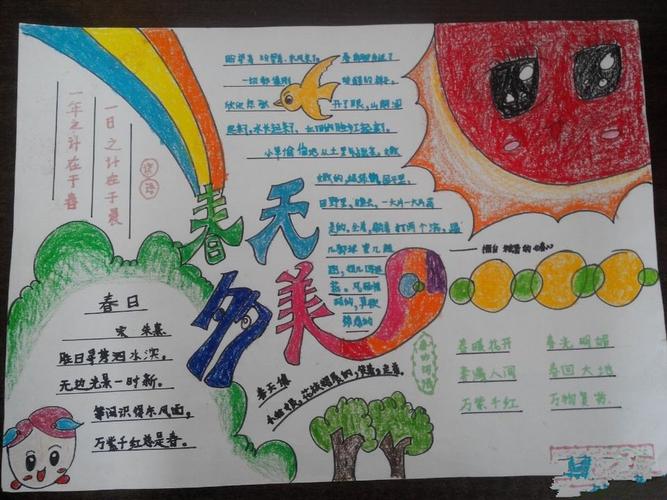 一年之计在于春
一日之计在于晨
谚语
春天多美
一切都像刚 睡醒的样子,
欣欣然张 开了眼,山朗润
起来了,水长起来了,太阳的脸红起来了。
小草偷偷地从土里钻出来,嫩
嫩的,绿绿的,园子里,
田野里,瞧去,一大片一大片满
是的,坐着,躺着,打两个滚,踢
几脚球,赛几趟
跑,捉几回迷
藏。风轻悄
悄的,草软
绵绵的
春日
宋 朱熹
胜日寻芳泗水滨,
无边光景一时新。
等闲识得东风面,
万紫千红总是春。
春天像
小姑娘,花枝招展的,笑着,走着
春的词语
春暖花开 春光明媚
春满人间 春回大地
万紫千红 万物复苏